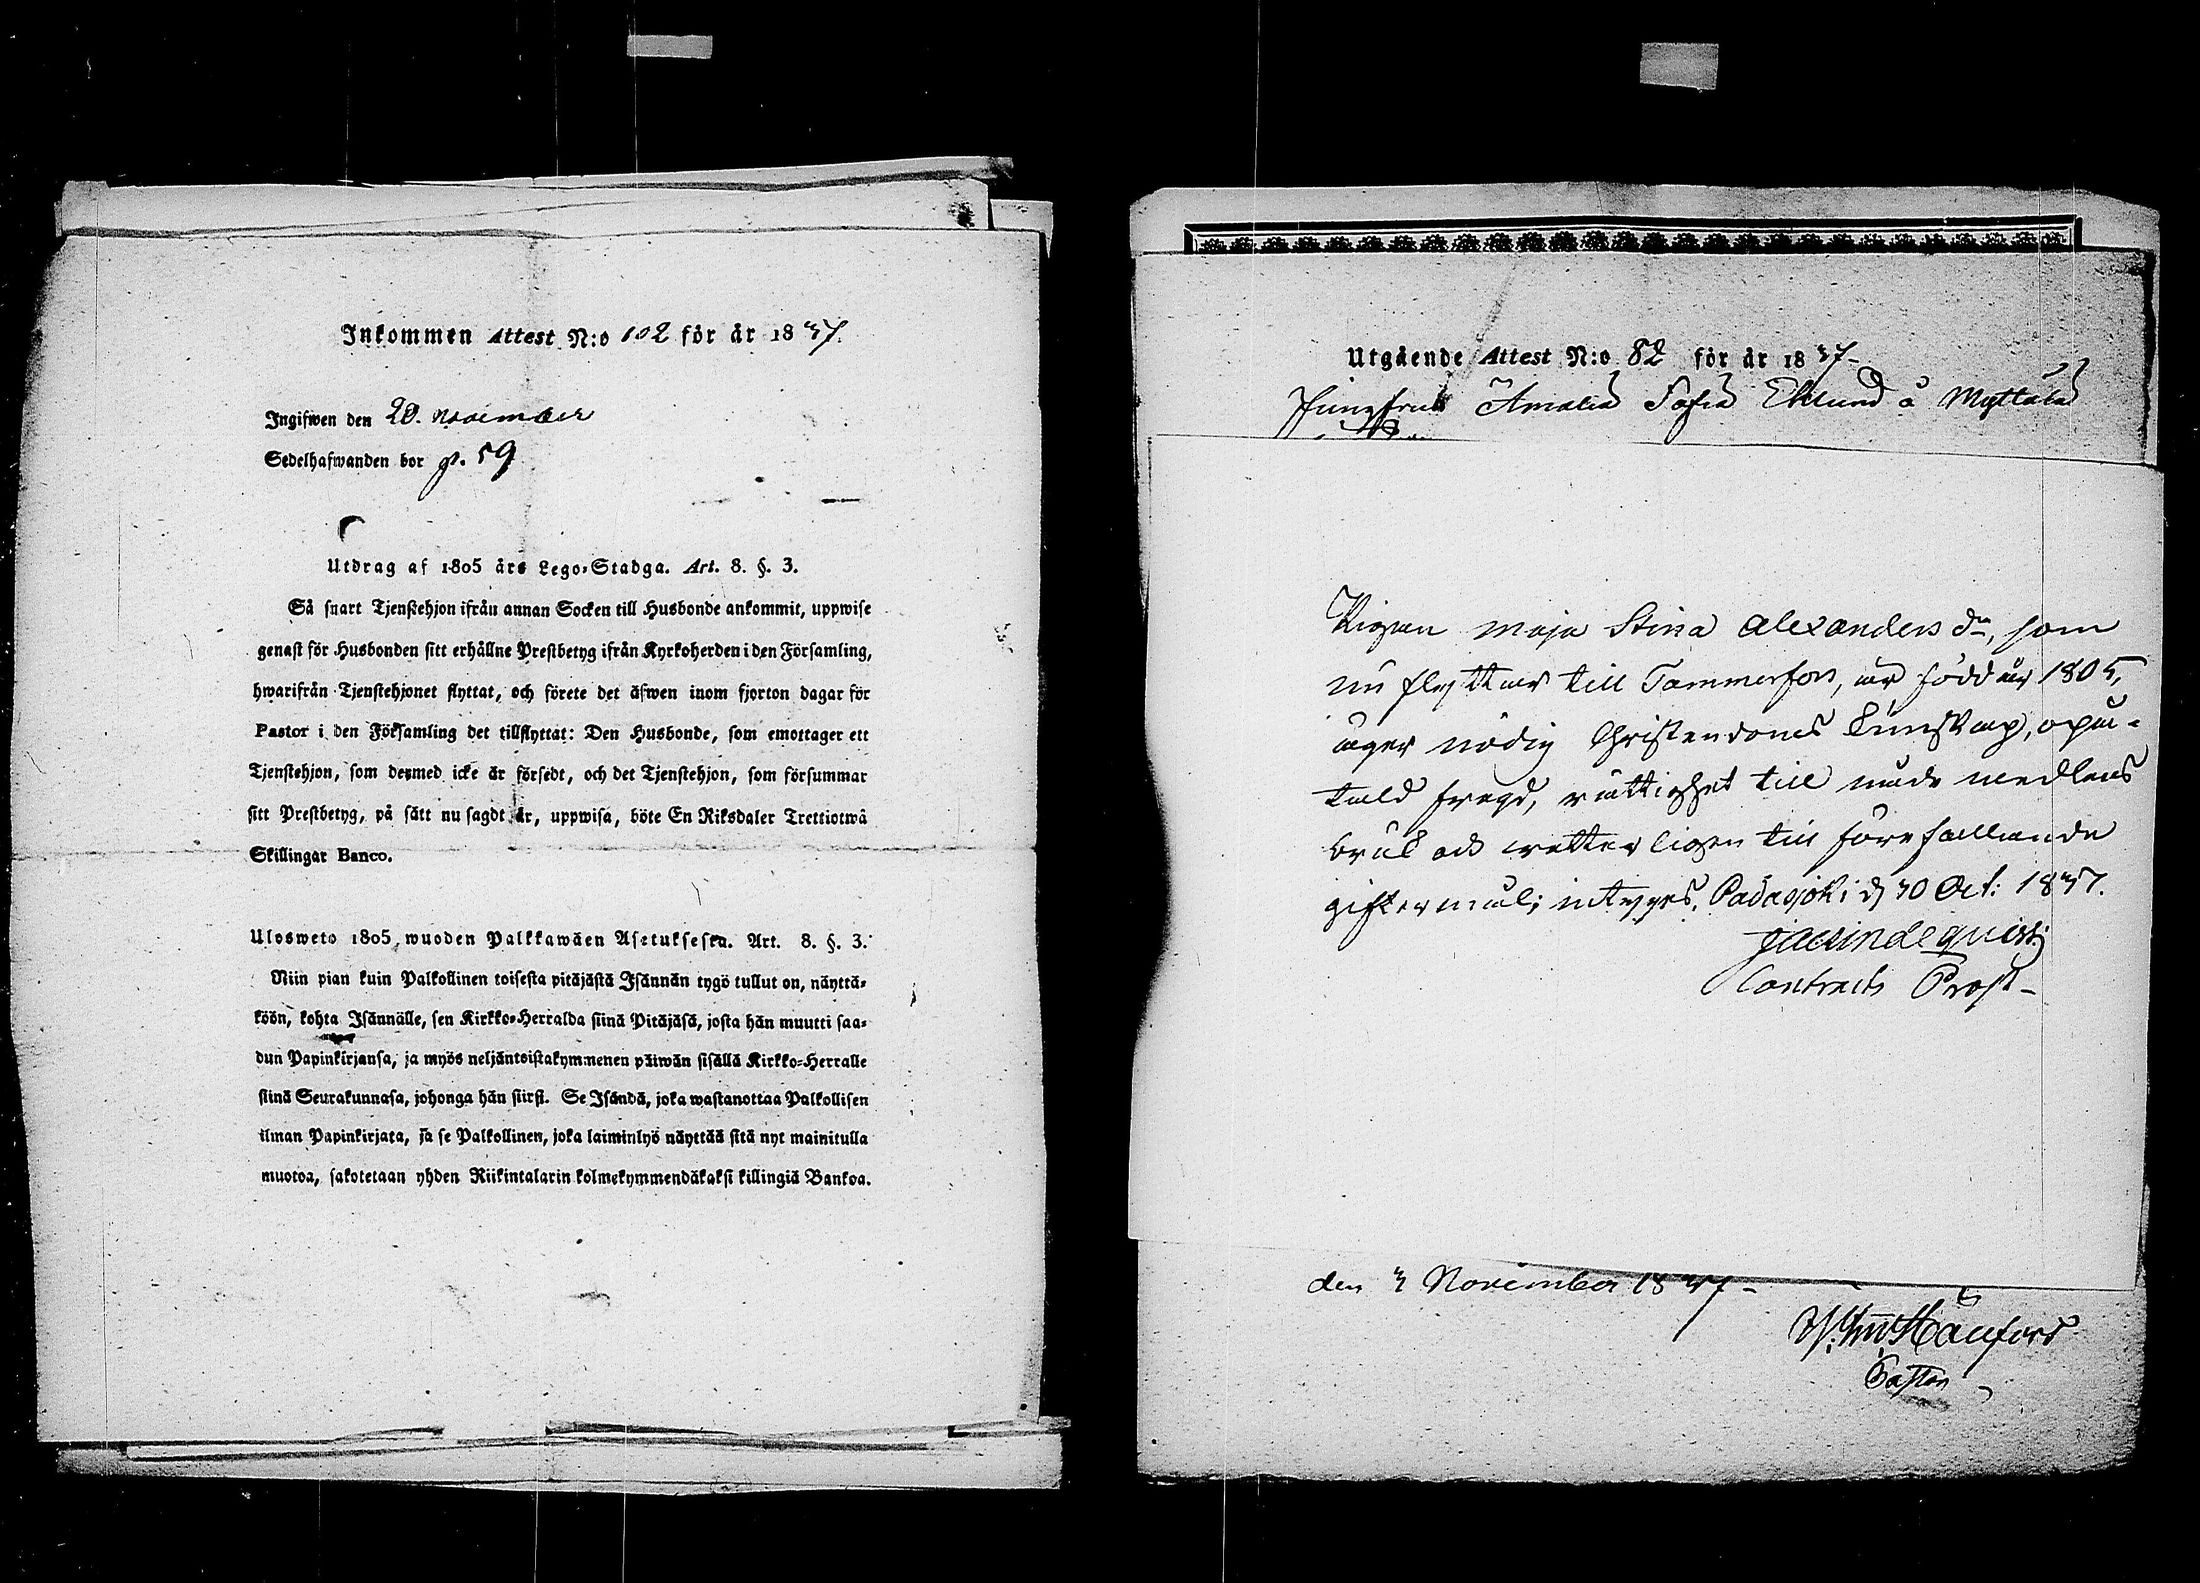 Inkommen Attest N:o 102 för år 1837.
Ingifwen den 20. November
Sedelhafwanden bor p. 59
Utdrag af 1805 års Lego-Stadga. Art. 8. §. 3.
Så snart Tjenstehjon ifrån annan Socken till Husbonde ankommit, uppwise
genast för Husbonden sitt erhållne Prestbetyg ifrån Kyrkoherden i den Församling,
hwarifrån Tjenstehjonet flyttat, och förete det äfwen inom fjorton dagar för
Pastor i den Församling det tillflyttat: Den Husbonde, som emottager ett
Tjenstehjon, som dermed icke är försedt, och det Tjenstehjon, som försummar
sitt Prestbetyg, på sätt nu sagdt är, uppwisa, böte En Riksdaler Trettiotwå
Skillingar Banco.
Ulosweto 1805 wuoden Palkkawäen Asetuksesta. Art. 8. §. 3.
Niin pian kuin Palkollinen toisesta pitäjästä Isännän tygö tullut on, näyttä-
köön, kohta Isännälle, sen Kirkko-Herralda siinä Pitäjäsä, josta hän muutti saa-
dun Papinkirjansa, ja myös neljäntoistakymmenen päiwän sisällä Kirkko-Herralle
siinä Seurakunnasa, johonga hän siirsi. Se Isändä, joka wastanottaa Palkollisen
ilman Papinkirjata, ja se Palkollinen, joka laiminlyö näyttää sitä nyt mainitulla
muotoa, sakotetaan yhden Riikintalarin kolmekymmendäkaksi killingiä Bankoa.
Utgående Attest N:o 82 för år 1837-
Jungfrun Amalia Sofia Eklund å Myttälä
Pigan Maja Stina Alexandersdr, som
nu flyttar till Tammerfors, är född år 1805,
äger nödig Christendoms kunskap, opåu-
tald fregd, rättighet till nådemedlens
bruk och wetterligen till förefallande
giftermål; intygas. Padasjoki d 30 Oct: 1837.
Contracts Prost-
den 3 November 1837-
Pastor